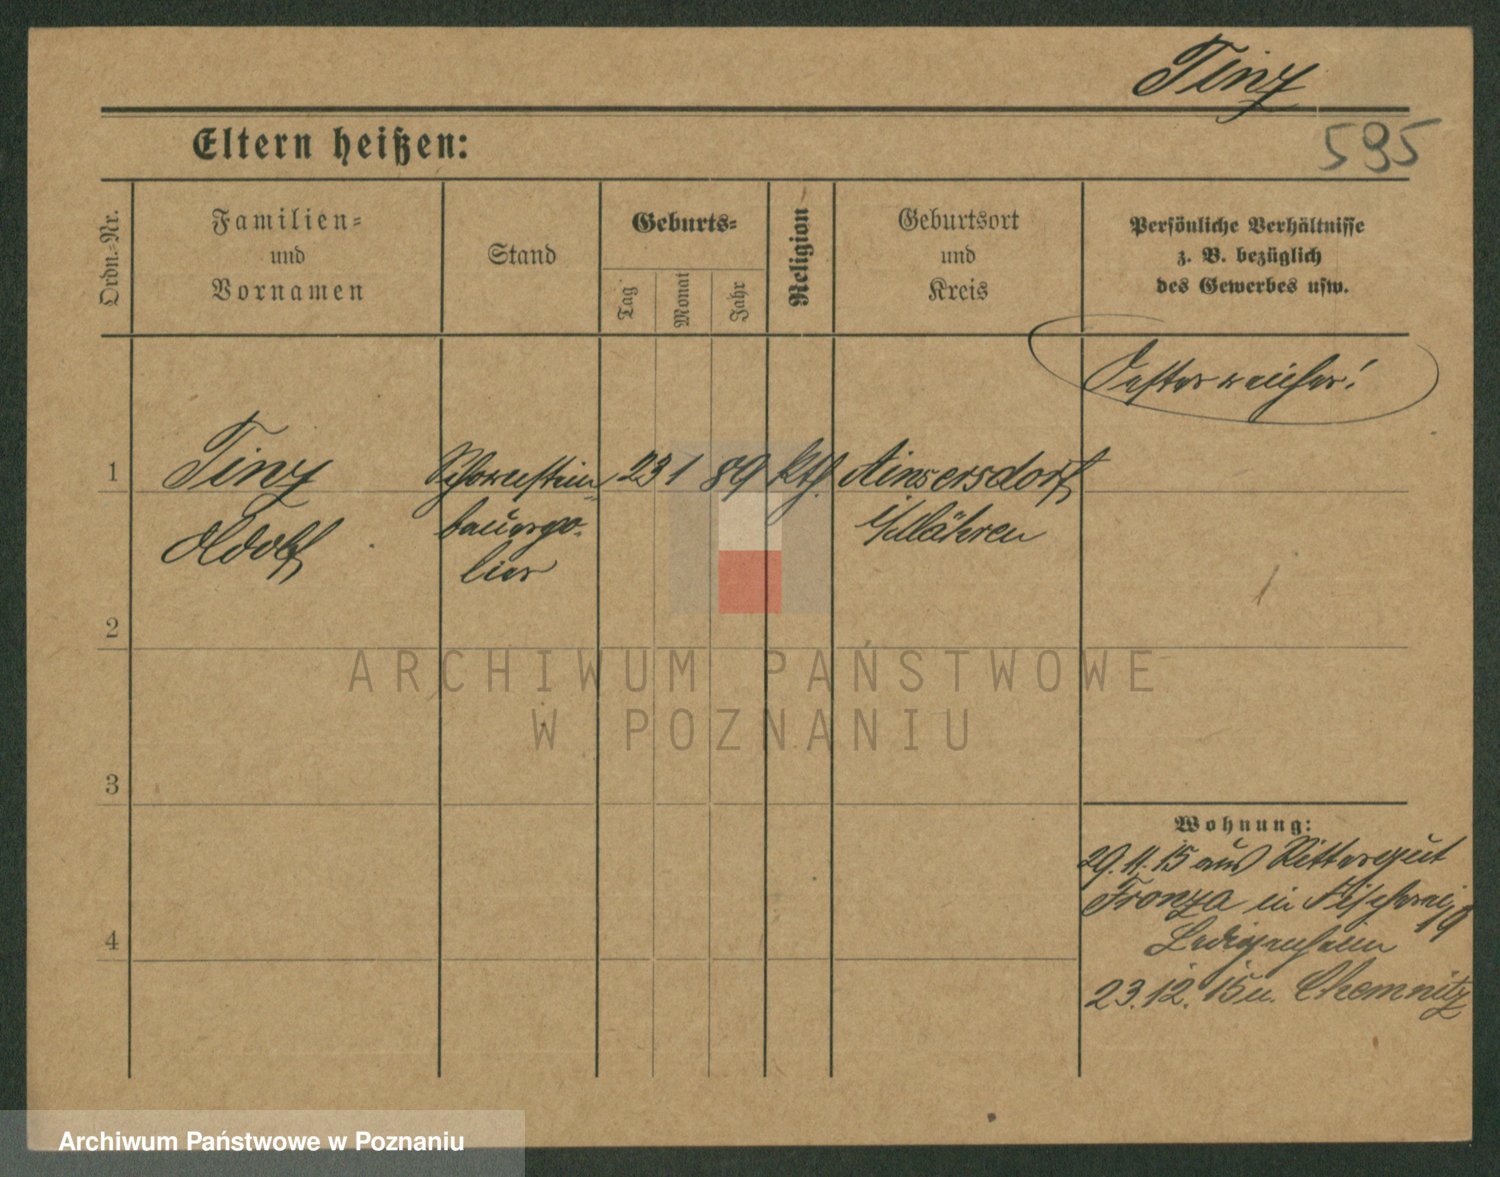 Tinz
Eltern heißen:
595
Ordn.-Nr.
Familien-
und
Vornamen
Stand
Geburts-
Tag
Monat
Jahr
Religion
Geburtsort
und
Kreis
Persönliche Verhältnisse
z. B. bezüglich
des Gewerbes usw.
Oesterreicher!
1
Tinz
Adolf
Schornstein
bauerpo-
lier
23 1 89 kth.
Ainsersdorf
i/Mähren
2
3
4
Wohnung:
29.11.15 aus Rittergut
in Fischerei 19
Ledigenheim
23.12.15 n. Chemnitz
ARCHIWUM PAŃSTWOWE
W POZNANIU
Archiwum Państwowe w Poznaniu